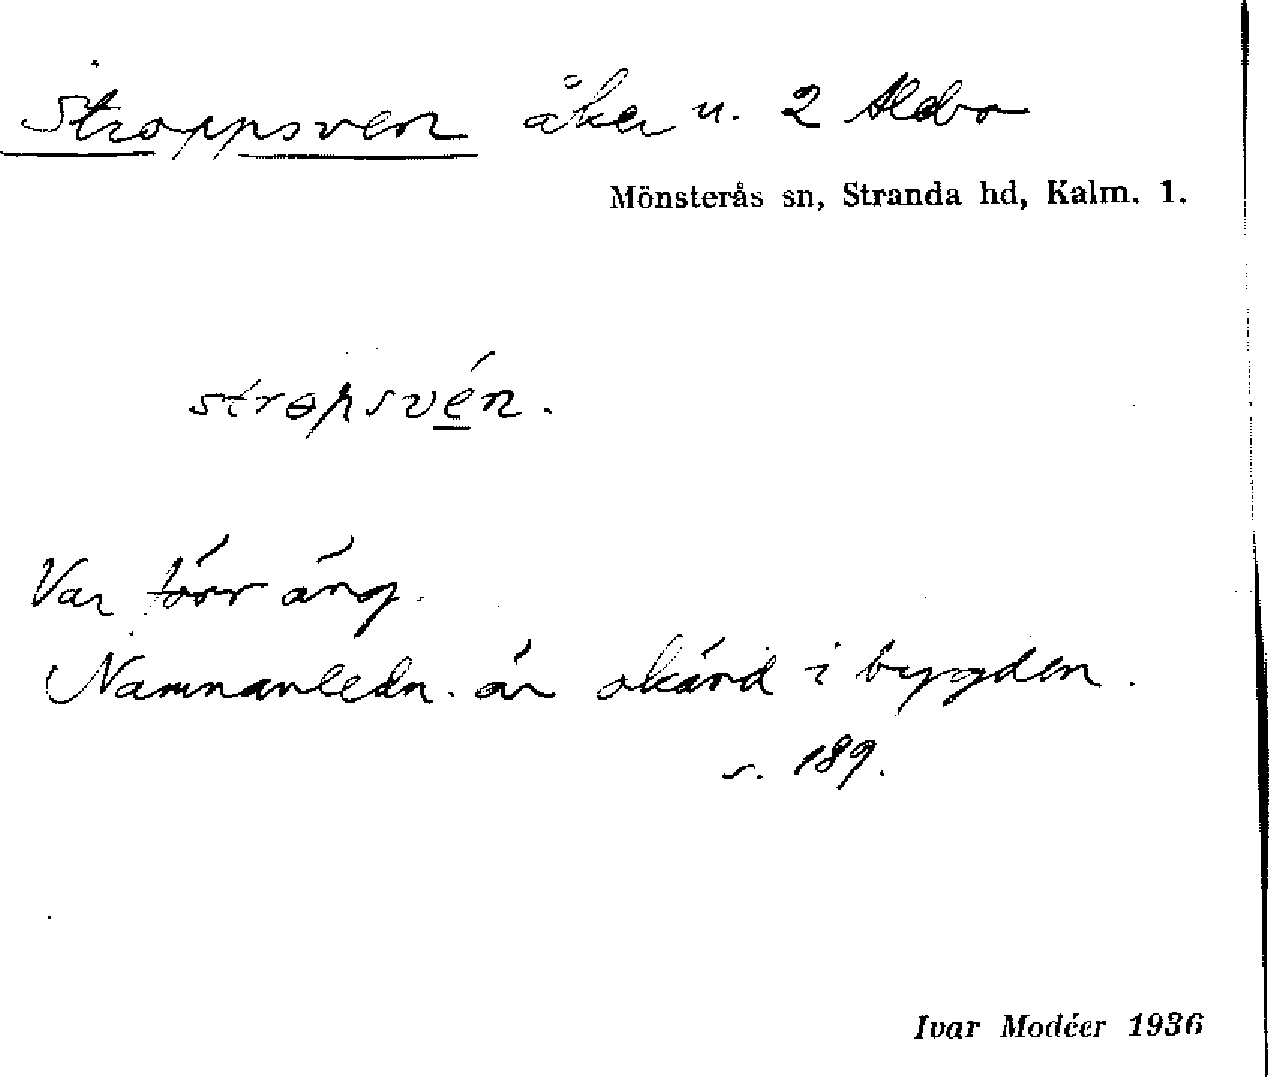 Stroppsven åker u. 2 Alebo
Mönsterås sn, Stranda hd, Kalm. l.
stropsvén.
Var förr äng.
Namnanledn. är okänd i bygden.
s. 189.
Ivar Modéer 1936